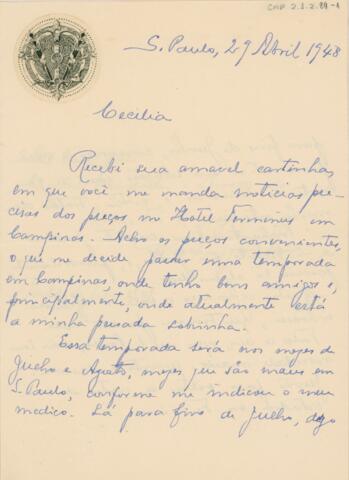 CMP 2.1.2.89-1
S. Paulo, 29 Abril 1948
Cecilia
Recebi sua amavel cartinha,
em que você me manda noticias pre-
cisas dos preços no Hotel Terminus em
Campinas. Acho os preços convenientes,
o que me decide passar uma temporada
em Campinas, onde tenho bons amigos e,
principalmente, onde atualmente está
a minha presada sobrinha.
Essa temporada será nos mezes de
Julho e Agosto, mezes que são maus em
S. Paulo, conforme me indicou o meu
medico. Lá para fins de Junho, digo